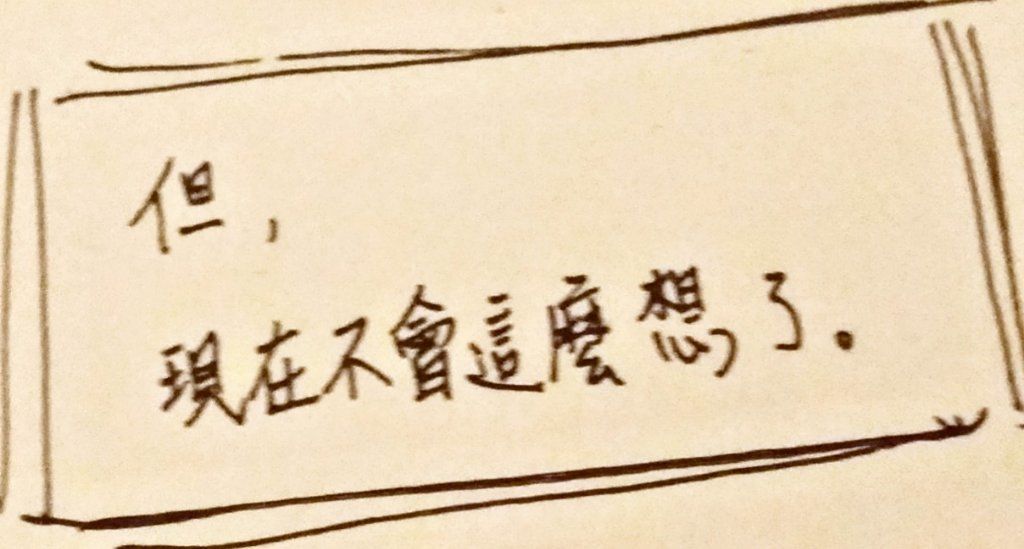 但,
現在不會這麼想了。